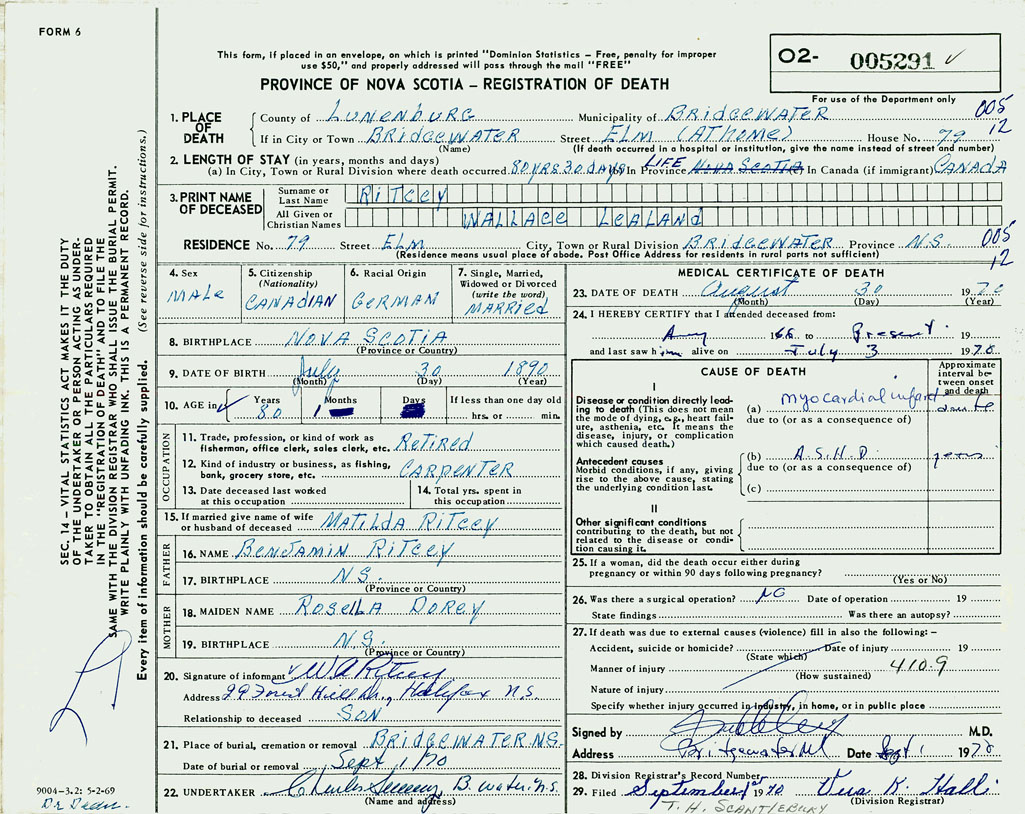 FORM 6
This form, if placed in an envelope, on which is printed "Dominion Statistics – Free, penalty for improper
use $50," and properly addressed will pass through the mail "FREE"
PROVINCE OF NOVA SCOTIA – REGISTRATION OF DEATH
O2- 005291
For use of the Department only
005
12
1. PLACE OF DEATH County of LUNENBURG Municipality of BRIDGEWATER
If in City or Town BRIDGEWATER Street ELM (AT HOME) House No. 79
(Name) (If death occurred in a hospital or institution, give the name instead of street and number)
2. LENGTH OF STAY (in years, months and days)
(a) In City, Town or Rural Division where death occurred 80 yrs 30 days (b) In Province LIFE NOVA SCOTIA (c) In Canada (if immigrant) CANADA
3. PRINT NAME OF DECEASED Surname or Last Name RITCEY
All Given or Christian Names WALLACE LEALAND
RESIDENCE No. 79 Street ELM City, Town or Rural Division BRIDGEWATER Province N.S. 005
(Residence means usual place of abode. Post Office Address for residents in rural parts not sufficient) 12
4. Sex MALE
5. Citizenship (Nationality) CANADIAN
6. Racial Origin GERMAN
7. Single, Married, Widowed or Divorced (write the word) MARRIED
8. BIRTHPLACE NOVA SCOTIA
(Province or Country)
9. DATE OF BIRTH July 30 1890
(Month) (Day) (Year)
10. AGE in Years 80 Months 1 Days If less than one day old
hrs. or min.
OCCUPATION
11. Trade, profession, or kind of work as fisherman, office clerk, sales clerk, etc. RETIRED
12. Kind of industry or business, as fishing, bank, grocery store, etc. CARPENTER
13. Date deceased last worked at this occupation
14. Total yrs. spent in this occupation
15. If married give name of wife or husband of deceased MATILDA RITCEY
FATHER
16. NAME BENJAMIN RITCEY
17. BIRTHPLACE N.S.
(Province or Country)
MOTHER
18. MAIDEN NAME ROSELLA DOREY
19. BIRTHPLACE N.S.
(Province or Country)
20. Signature of informant W A Ritcey
Address 29 Forest Hill Dr., Halifax N.S.
Relationship to deceased SON
21. Place of burial, cremation or removal BRIDGEWATER N.S.
Date of burial or removal Sept 1/70
22. UNDERTAKER Charles Sweeny B.water N.S.
(Name and address)
MEDICAL CERTIFICATE OF DEATH
23. DATE OF DEATH August 30 1970
(Month) (Day) (Year)
24. I HEREBY CERTIFY that I attended deceased from:
1968 to Present 19
and last saw him alive on July 3 1970
CAUSE OF DEATH
Approximate interval between onset and death
I
Disease or condition directly leading to death (This does not mean the mode of dying, e.g., heart failure, asthenia, etc. It means the disease, injury, or complication which caused death.)
(a) myocardial infarct acute
due to (or as a consequence of)
Antecedent causes
Morbid conditions, if any, giving rise to the above cause, stating the underlying condition last.
(b) A.S.H.D. years
due to (or as a consequence of)
(c)
II
Other significant conditions contributing to the death, but not related to the disease or condition causing it.
25. If a woman, did the death occur either during pregnancy or within 90 days following pregnancy?
(Yes or No)
26. Was there a surgical operation? NO Date of operation 19
State findings Was there an autopsy?
27. If death was due to external causes (violence) fill in also the following: –
Accident, suicide or homicide? Date of injury 19
(State which)
Manner of injury 410.9
(How sustained)
Nature of injury
Specify whether injury occurred in industry, in home, or in public place
Signed by M.D.
Address Bridgewater Date Sept 1 1970
28. Division Registrar's Record Number
29. Filed September 1970 K. Hall
(Division Registrar)
T. H. SCANTLEBURY
SEC. 14 – VITAL STATISTICS ACT MAKES IT THE DUTY
OF THE UNDERTAKER OR PERSON ACTING AS UNDER-
TAKER TO OBTAIN ALL THE PARTICULARS REQUIRED
IN THE "REGISTRATION OF DEATH" AND TO FILE THE
SAME WITH THE DIVISION REGISTRAR WHO SHALL ISSUE THE BURIAL PERMIT.
WRITE PLAINLY WITH UNFADING INK. THIS IS A PERMANENT RECORD.
Every item of information should be carefully supplied. (See reverse side for instructions.)
9004-3.2: 5-2-69